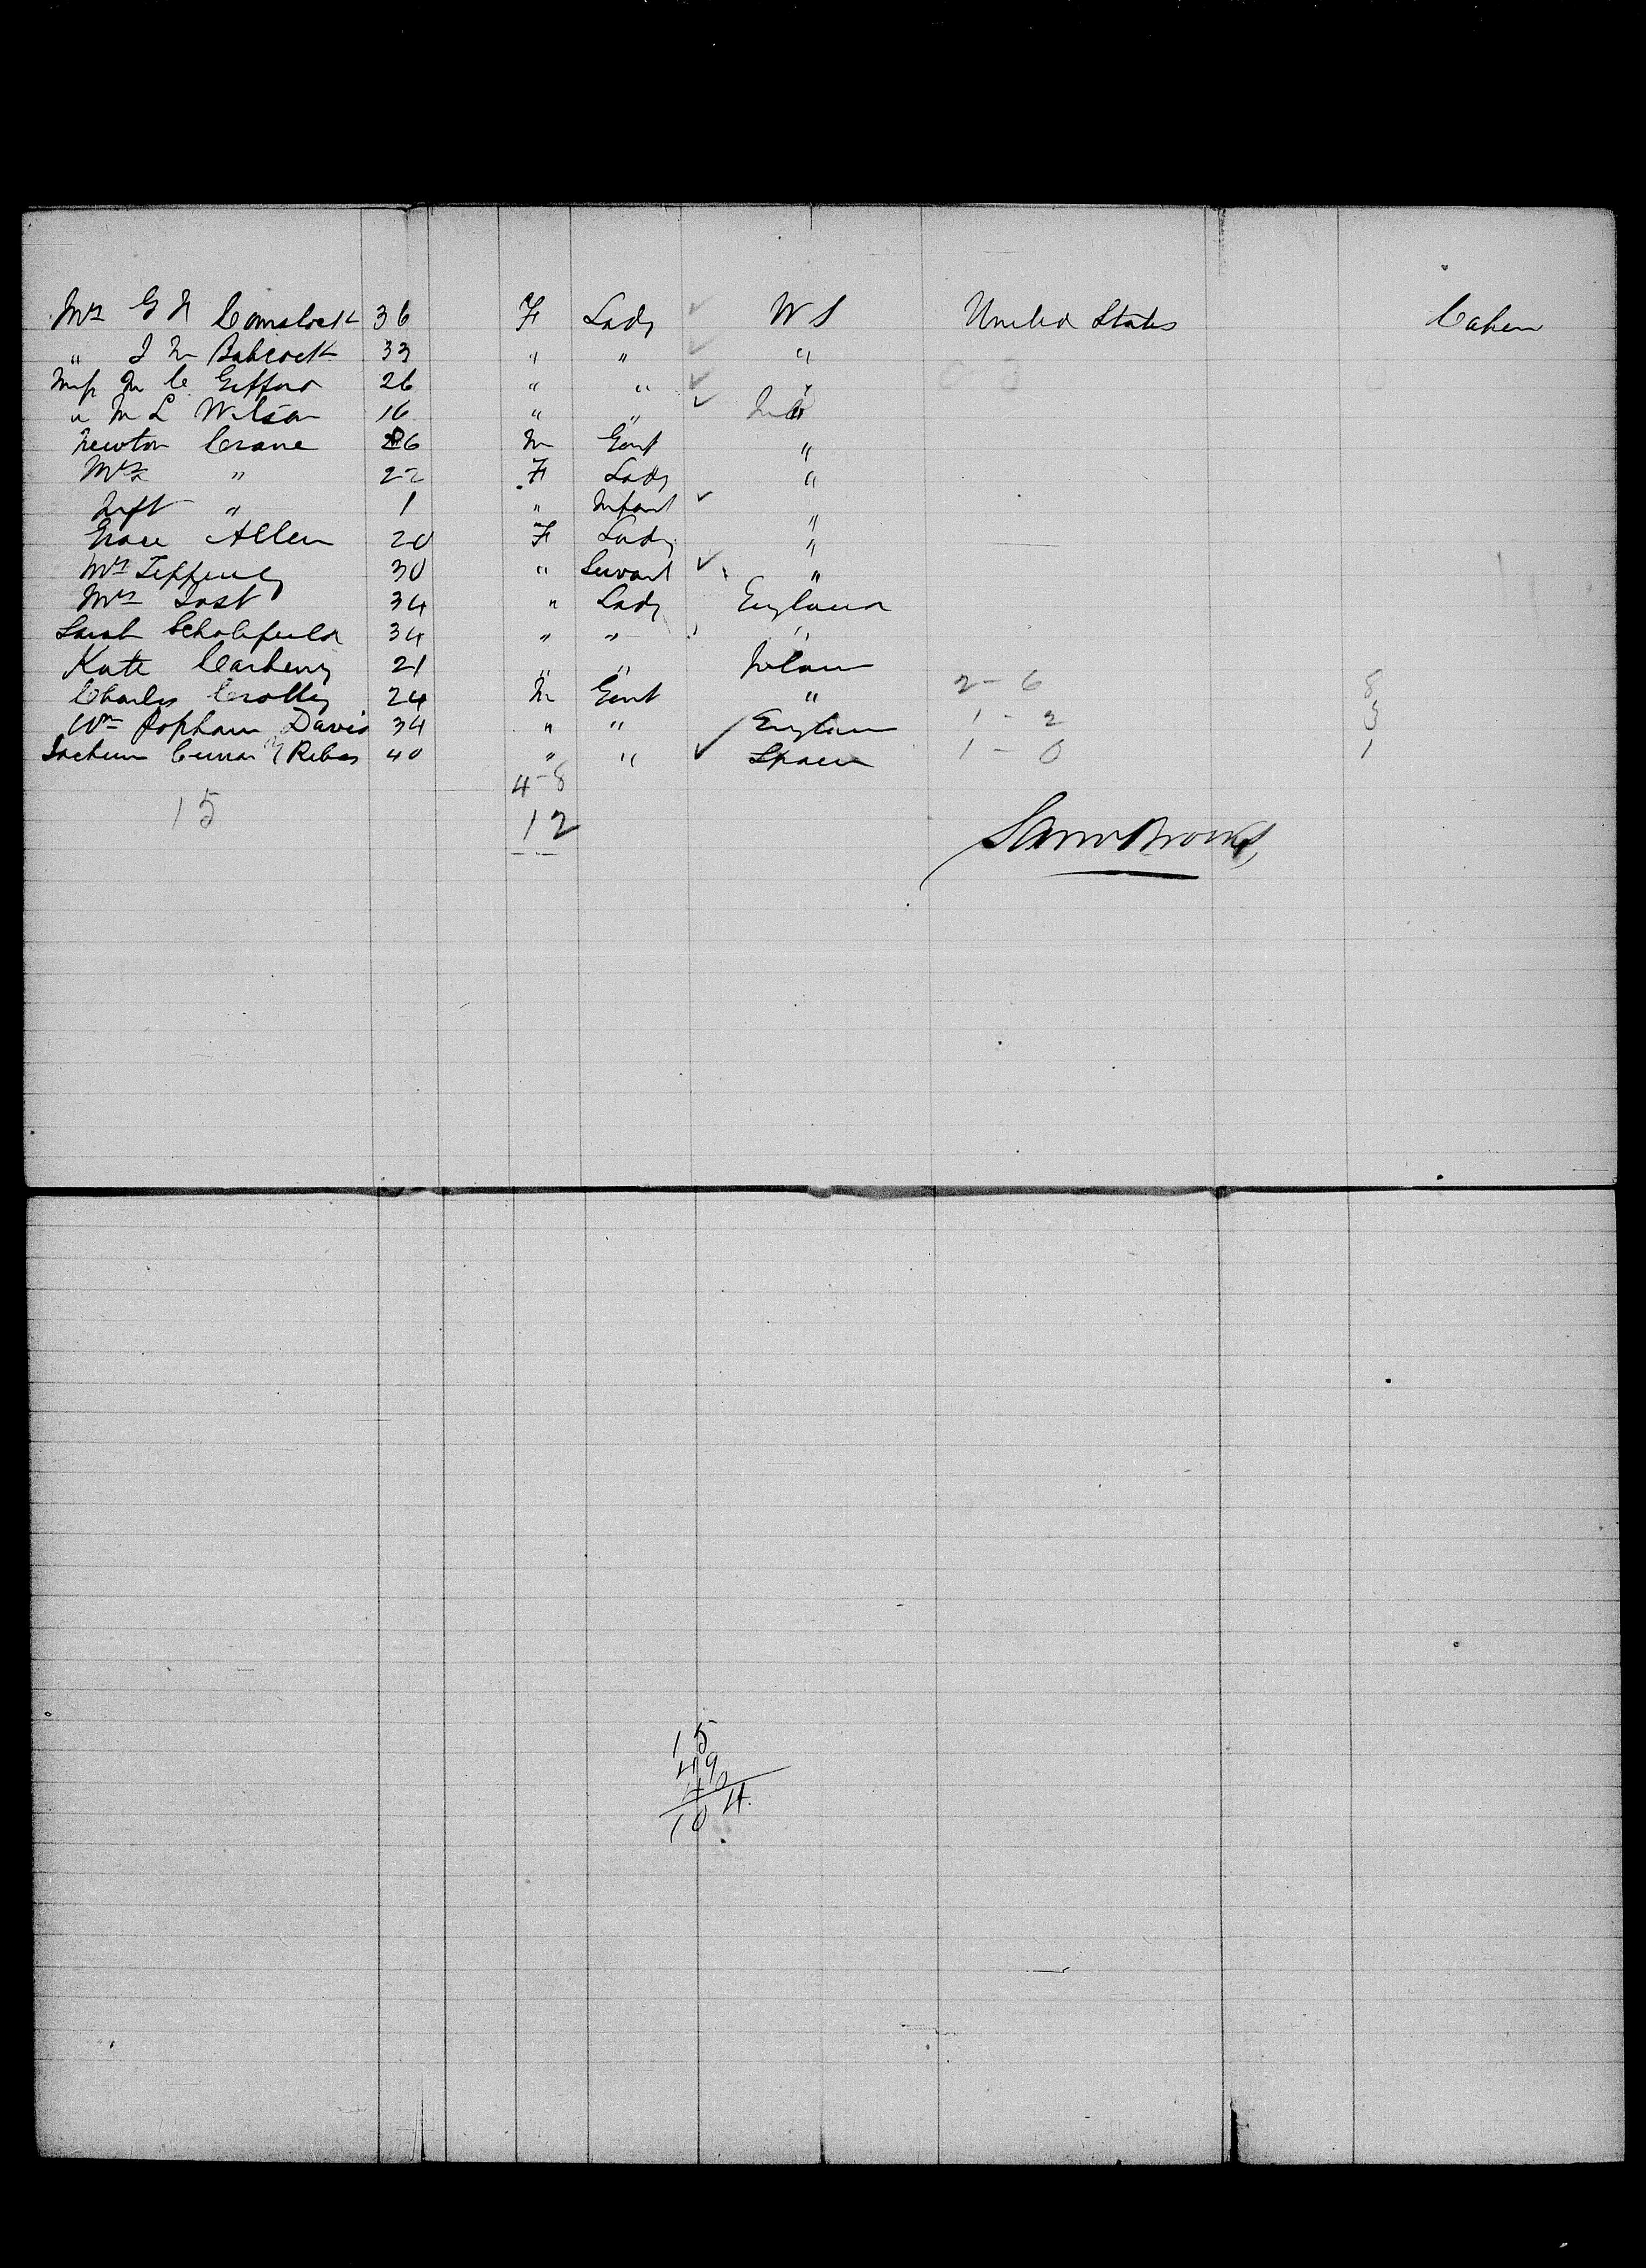 Mrs G N Comstock 36 F Lady U S United States Cabin
" J M Babcock 33 " " "
Miss M C Gifford 26 " " "
" M L Wilson 16 " "
Newton Crane 26 M Gent "
Mrs " 22 F Lady "
Inft " 1 " Infant "
Grace Allen 20 F Lady "
Mrs 30 " Servant "
Mrs Last 34 " Lady England
Sarah Scholefield 34 " " "
Kate Carbery 21 " " Irelan
Charles Crolly 24 M Gent " 2 - 6 8
Wm Popham Davis 34 " " Englan 1 - 2 3
Ribas 40 " " Spain 1 - 0 1
4 - 8
15 12
15
49
40
104